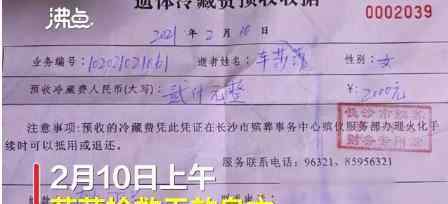 沸点
遗体冷藏费预收收据
0002039
2021年2月10日
业务编号: 逝者姓名: 性别: 女
预收冷藏费人民币(大写): 贰仟元整 ¥: 2000元
注意事项:预收的冷藏费凭此凭证在长沙市殡葬事务中心殡仪服务部办理火化手
续时可以抵用或退还。
服务联系电话: 96321、85956321
2月10日上午